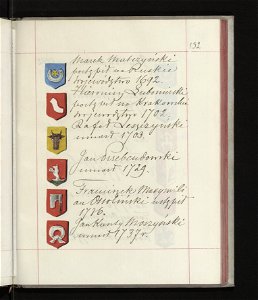 132
Marek Matczyński
postąpił na Ruskie
województwo 1692.
Hieronim Lubomirski
postąpił na Krakowskie
województwo 1702.
Rafał Leszczyński
umarł 1703.
Jan
umarł 1729.
Franciszek Maxymili
an Ossoliński ustąpił
1736.
Jan Kanty Moszyński
umarł 1737 r.